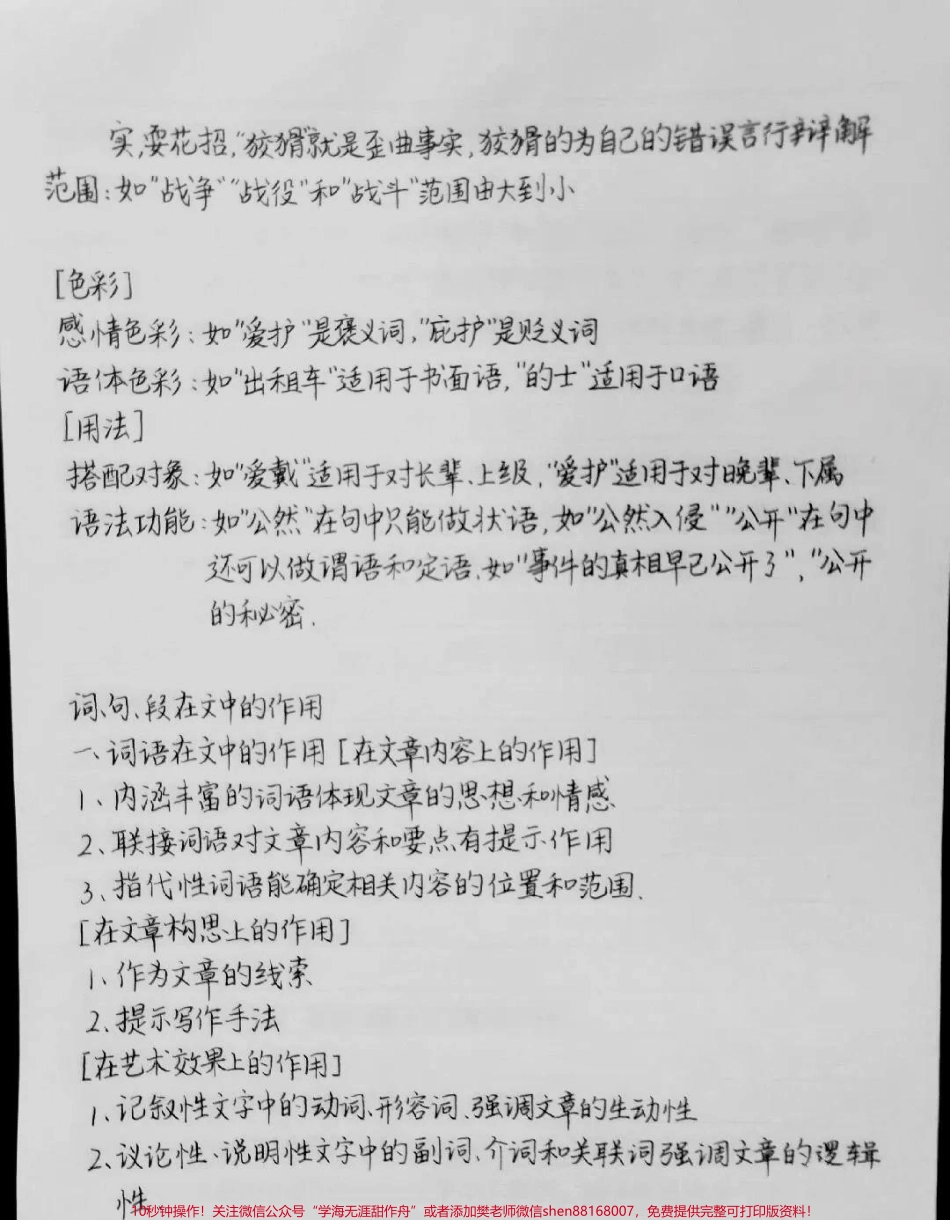 实,耍花招,“狡猾”就是歪曲事实,狡猾的为自己的错误言行辩解
范围:如“战争”“战役”和“战斗”范围由大到小
[色彩]
感情色彩:如“爱护”是褒义词,“庇护”是贬义词
语体色彩:如“出租车”适用于书面语,“的士”适用于口语
[用法]
搭配对象:如“爱戴”适用于对长辈、上级,“爱护”适用于对晚辈、下属
语法功能:如“公然”在句中只能做状语,如“公然入侵”“公开”在句中
还可以做谓语和定语、如“事件的真相早已公开了”,“公开
的秘密.
词、句、段在文中的作用
一、词语在文中的作用[在文章内容上的作用]
1、内涵丰富的词语体现文章的思想和情感
2、联接词语对文章内容和要点有提示作用
3、指代性词语能确定相关内容的位置和范围.
[在文章构思上的作用]
1、作为文章的线索
2、提示写作手法
[在艺术效果上的作用]
1、记叙性文字中的动词、形容词、强调文章的生动性
2、议论性、说明性文字中的副词、介词和关联词强调文章的逻辑
性
10秒钟操作!关注微信公众号“学海无涯甜作舟”或者添加樊老师微信shen88168007,免费提供完整可打印版资料!